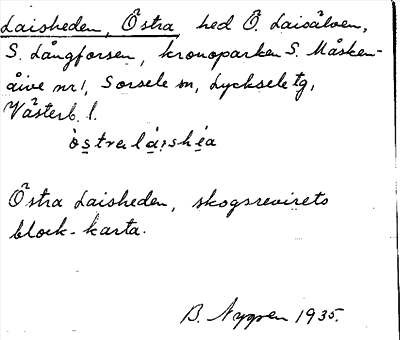 Laisheden, Östra, hed Ö. Laisälven,
S. Långforsen, kronoparken S. Måsken-
åive nr 1, Sorsele sn, Lycksele tg,
Västerb. l.
Östra Laisheden, skogsrevirets
block-karta.
B. Nygren 1935.